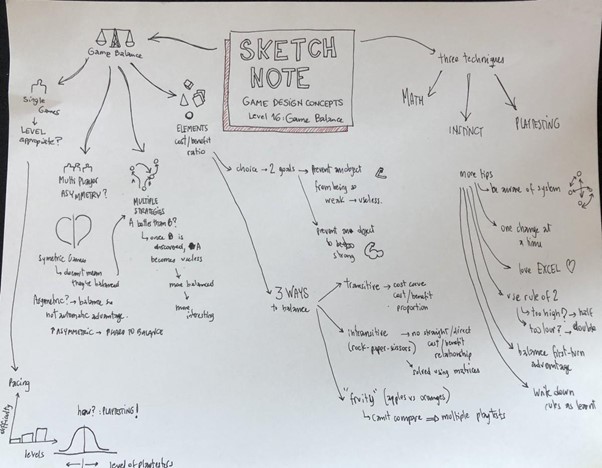 SKETCH
NOTE
GAME DESIGN CONCEPTS
Level 16: Game Balance
Game Balance
Single
Games
LEVEL
appropriate?
Pacing
difficulty
levels
how? : PLAYTESTING!
level of playtesters
Multi Player
ASYMMETRY?
Symetric Games
doesn't mean
they're balanced
Asymetric? → balance is
not automatic advantage.
↑ ASYMMETRIC → ↑ HARD TO BALANCE
MULTIPLE
STRATEGIES
A better than B?
once B is
discovered, A
becomes useless
more balanced
more
interesting
ELEMENTS
cost/benefit
ratio
choice → 2 goals → prevent an object
from being so
weak → useless.
prevent an object
to be so
strong
3 WAYS
to balance
transitive → cost curve
cost/benefit
proportion
intransitive → no straight/direct
(rock-paper-scissors) cost/benefit
relationship
solved using matrices
"fruity" (apples vs oranges)
can't compare ⇒ multiple playtests
three techniques
MATH
INSTINCT
PLAYTESTING
more tips
be aware of system
one change at
a time
love EXCEL ♡
use rule of 2
too high? → half
too low? → double
balance first-turn
advantage
write down
rules as learnt